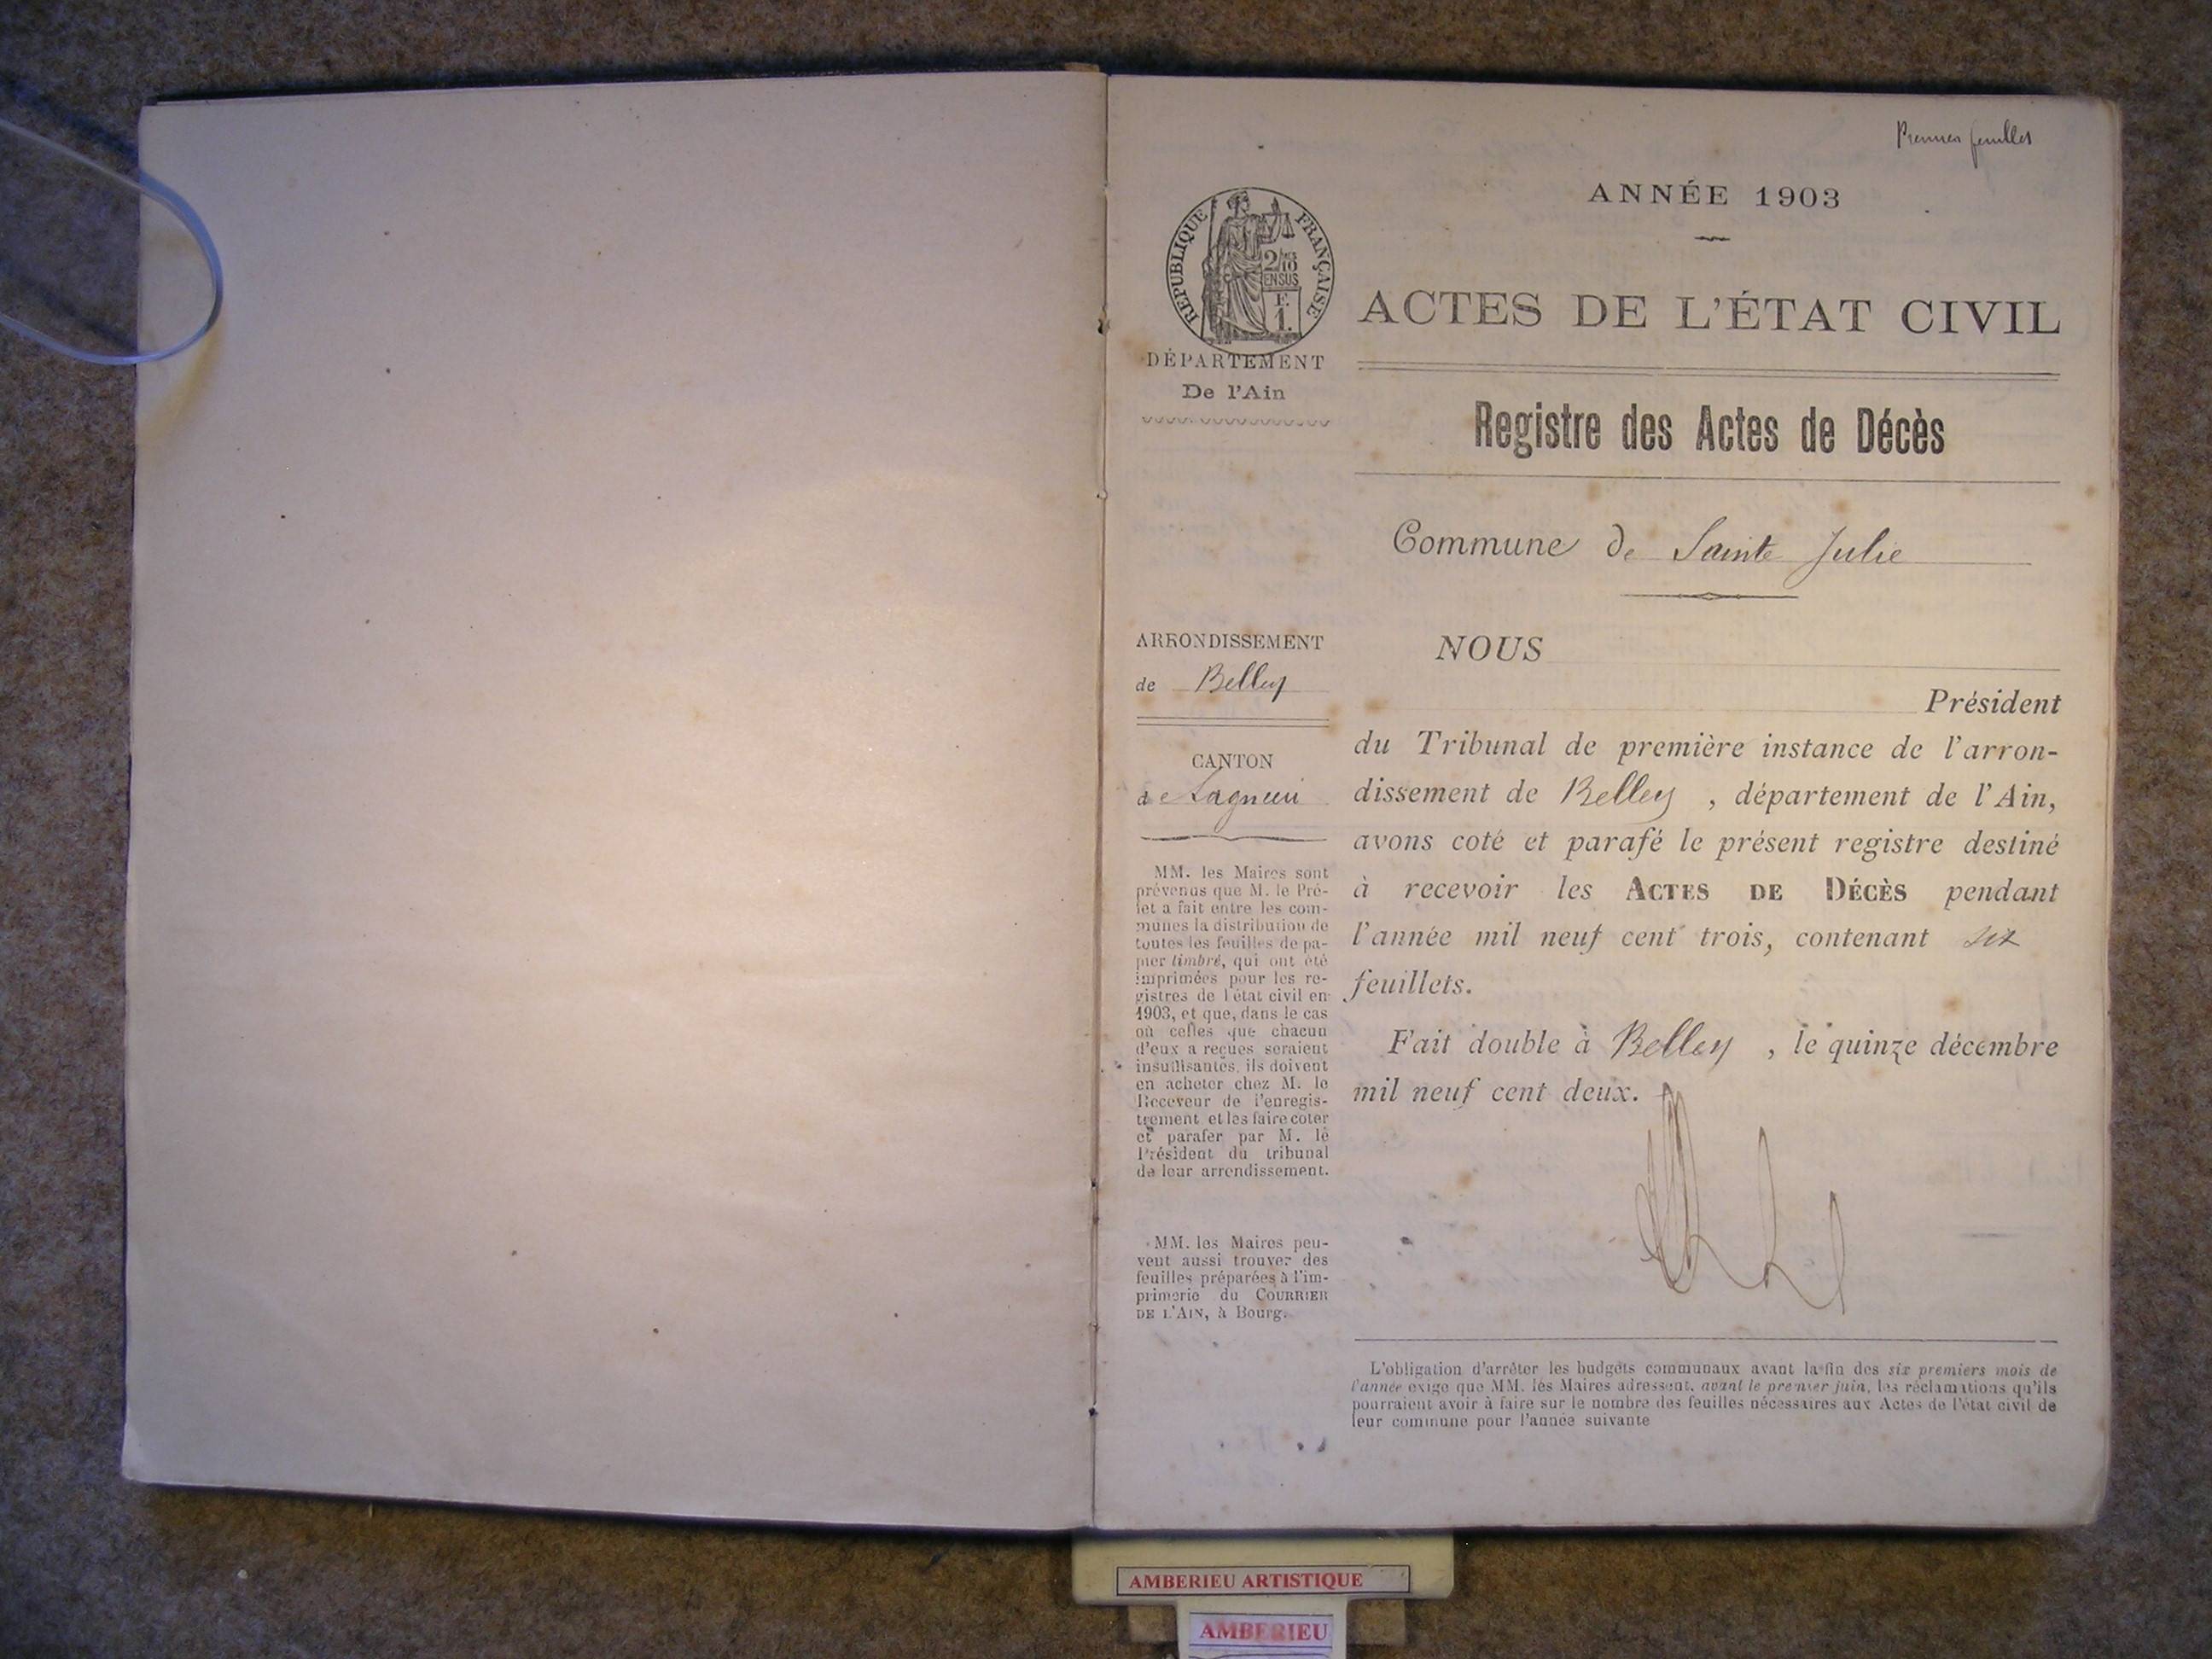 Premier feuillet
ANNÉE 1903
RÉPUBLIQUE FRANÇAISE
2/10
EN SUS
F.
1.
ACTES DE L'ÉTAT CIVIL
DÉPARTEMENT
De l'Ain
Registre des Actes de Décès
Commune de Sainte Julie
ARRONDISSEMENT
de Belley
CANTON
de Lagnieu
MM. les Maires sont
prévenus que M. le Pré-
fet a fait entre les com-
munes la distribution de
toutes les feuilles de pa-
pier timbré, qui ont été
imprimées pour les re-
gistres de l'état civil en
1903, et que, dans le cas
où celles que chacun
d'eux a reçues seraient
insuffisantes, ils doivent
en acheter chez M. le
Receveur de l'enregis-
trement et les faire coter
et parafer par M. le
Président du tribunal
de leur arrondissement.
MM. les Maires peu-
vent aussi trouver des
feuilles préparées à l'im-
primerie du COURRIER
DE L'AIN, à Bourg.
NOUS
Président
du Tribunal de première instance de l'arron-
dissement de Belley , département de l'Ain,
avons coté et parafé le présent registre destiné
à recevoir les ACTES DE DÉCÈS pendant
l'année mil neuf cent trois, contenant six
feuillets.
Fait double à Belley , le quinze décembre
mil neuf cent deux.
L'obligation d'arrêter les budgets communaux avant la fin des six premiers mois de
l'année exige que MM. les Maires adressent, avant le premier juin, les réclamations qu'ils
pourraient avoir à faire sur le nombre des feuilles nécessaires aux Actes de l'état civil de
leur commune pour l'année suivante
AMBERIEU ARTISTIQUE
AMBERIEU